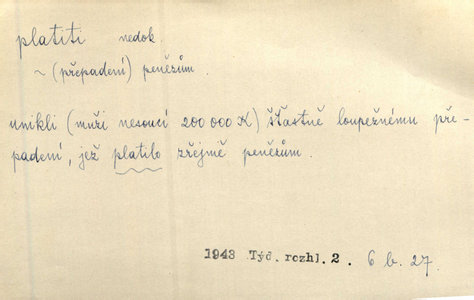 platiti nedok.
~ (přepadení) penězům.
unikli (muži nesoucí 200 000 K) šťastně loupežnému pře-
padení, jež platilo zřejmě penězům.
1943 Týd. rozhl. 2. 6 b. 27.